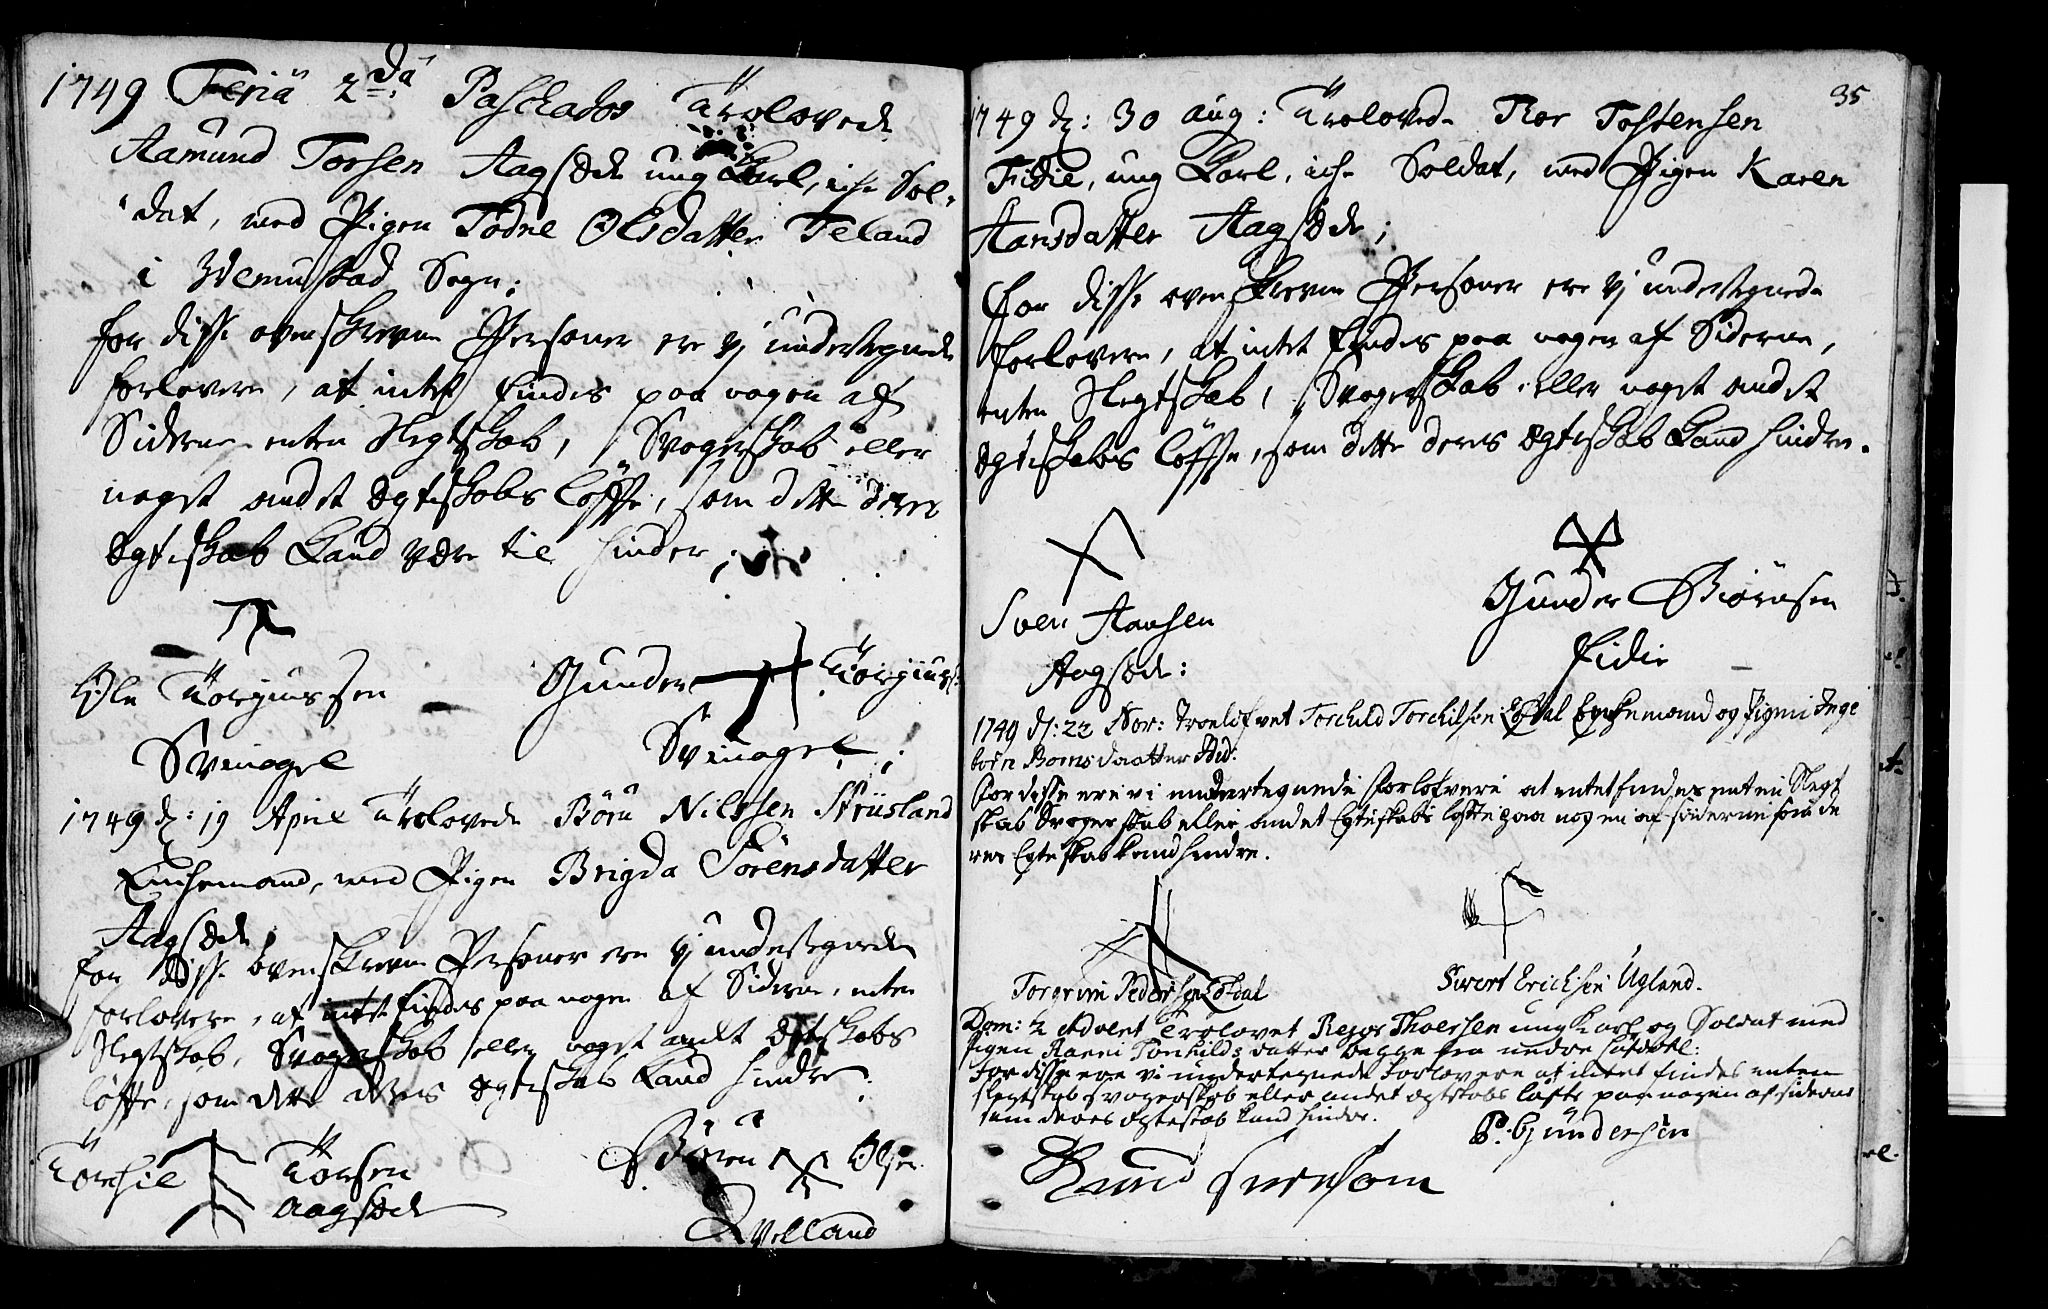 1749 Feriâ 2dâ Paschatos Trolovede
Aamund Torsen Aagsæde ung Karl, iche Sol-
dat, med Pigen Todne Olsdatter Teland
i Wemustad Sogn;
for disse ovenskrevne Personer ere vj undertegnede
forlovere, at intet findes paa nogen af
Siderne enten Slegtskab, Svogerskab eller
noget andet Ægteskabs löffte, som dette deres
Ægteskab kand være til hinder;
Ole Torgiussen
Gunder Torgiuss:
Svinagel
Svinagel;
1749 d: 19 April Trolovede Börü Nilssen Striisland
Enchemand, med Pigen Brigda Sörensdatter
Aagsæde
for disse ovenskrevne Personer ere vj undertegnede
forlovere, at intet findes paa nogen af Siderne, enten
Slegtskab, Svogerskab eller noget andt Ægteskabs
löffte, som dette deres Ægteskab kand hindre.
Torkil Törsen
Aagsæde
Bören Olsen
Qvelland
35
1749 d: 30 Aug: Trolovede Tor Tostensen
Fidie, ung Karl, iche Soldat, med Pigen Karen
Hansdatter Aagsæde;
for disse ovenskrevne Personer ere vj undertegnede
forlovere, at intet findes paa nogen af Siderne,
enten Slegtskab, Svogerskab eller noget andet
Ægteskabs löffte, som dette deres Ægteskab kand hindre.
Sven Hansen
Gunder Biörnsen
Aagsæde:
Fidie
1749 d: 23 Nov: troelofvet Torchild Torchilsen Enkemand og Pigen Inge
Sted:
for disse ere vi undertegnede forlofvere at entet findes enten Slegt
skab Svogerskab eller andet Egteskabs löfte paa nogen af siderne som de
res Egteskab kand hindre.
Torgrim Pedersen
Sivert Erichsen Ugland.
Dom: 2 Advent Trolovet Rejor Thorsen ung Karl og Soldat med
Pigen Ranni Torkilds datter begge fra nedre
For disse ere vi undertegnede Forlovere at intet findes enten
slegtskab svogerskab eller andet ogteskabs löfte paa nogen af siderne
som deres ogteskab kand hindre.
P: Gündersen
Knud Svensøn